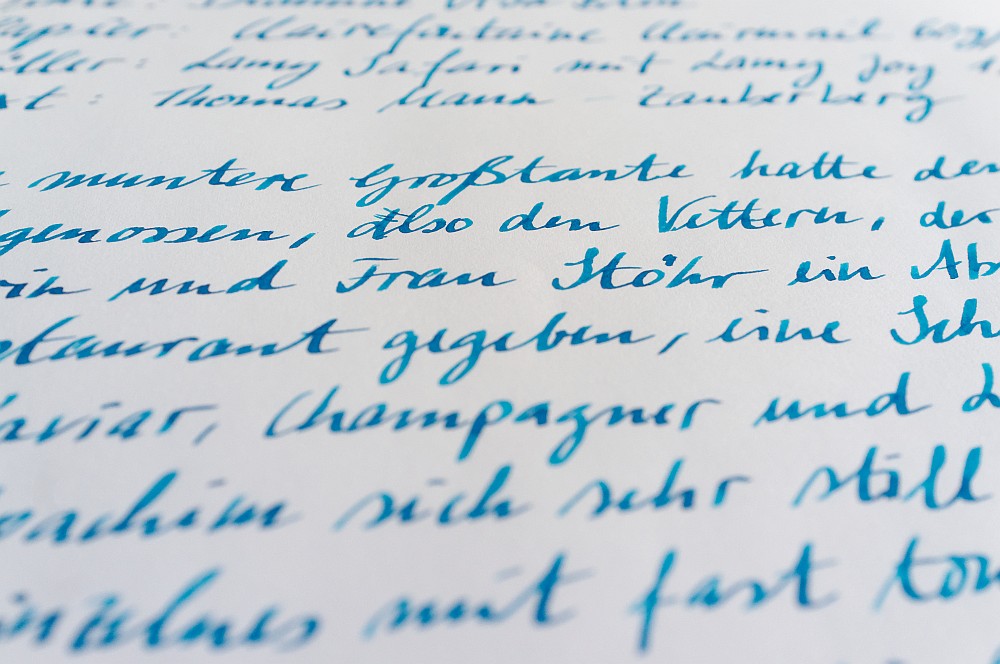 Papier: Clairefontaine Clairmail 60g/
üller: Lamy Safari mit Lamy Joy 1
xt: Thomas Mann – Zauberberg
muntere Großtante hatte den
genossen, also den Vettern, der
rin und Frau Stöhr ein Ab
staurant gegeben, eine Sch
aviar, Champagner und
oachim sich sehr still
inzelnes mit fast ton